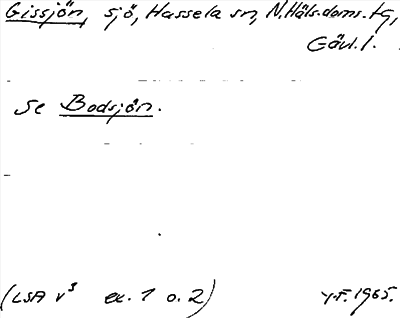 Gissjön, sjö, Hassela sn, N. Häls. doms. tg,
Gävl. l.
Se Bodsjön.
(LSA v³ ex. 1 o. 2) Y.F. 1965.